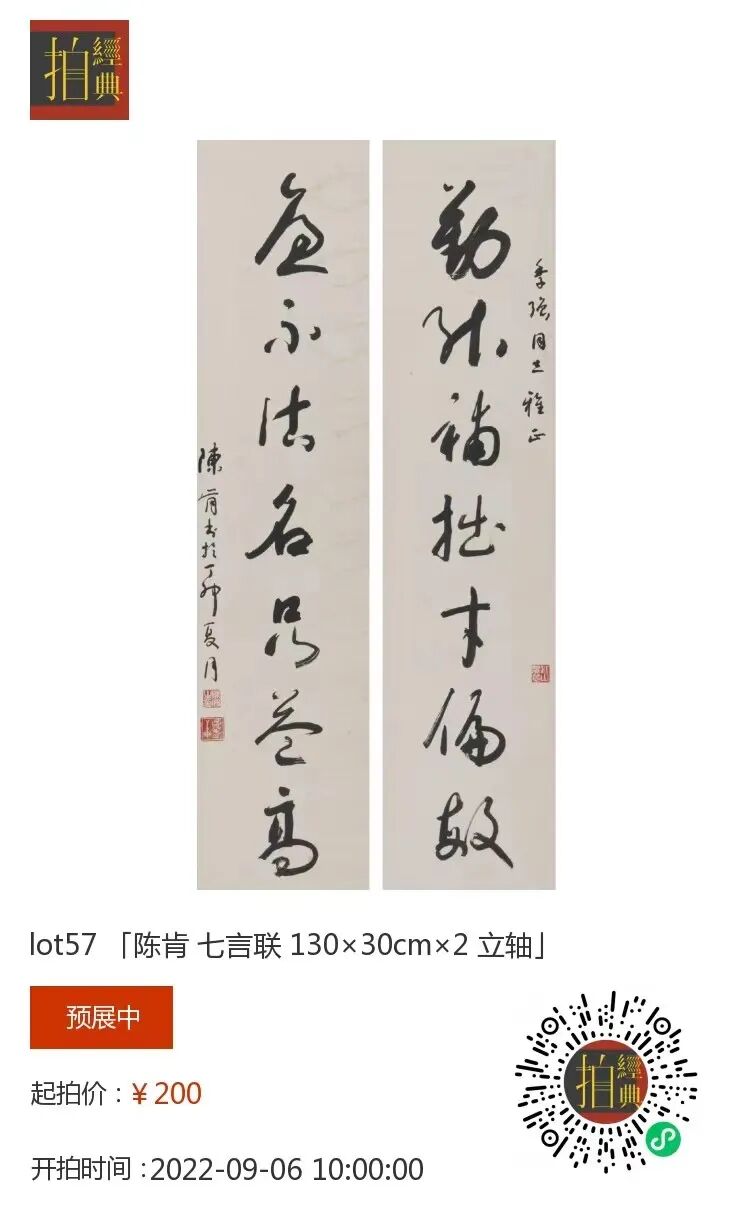 拍經典
季强同志雅正
勤能補拙才偏敏
廉不沽名品益高
陳肯书於丁卯夏月
lot57 「陈肯 七言联 130×30cm×2 立轴」
预展中
起拍价：¥200
开拍时间：2022-09-06 10:00:00
拍經典